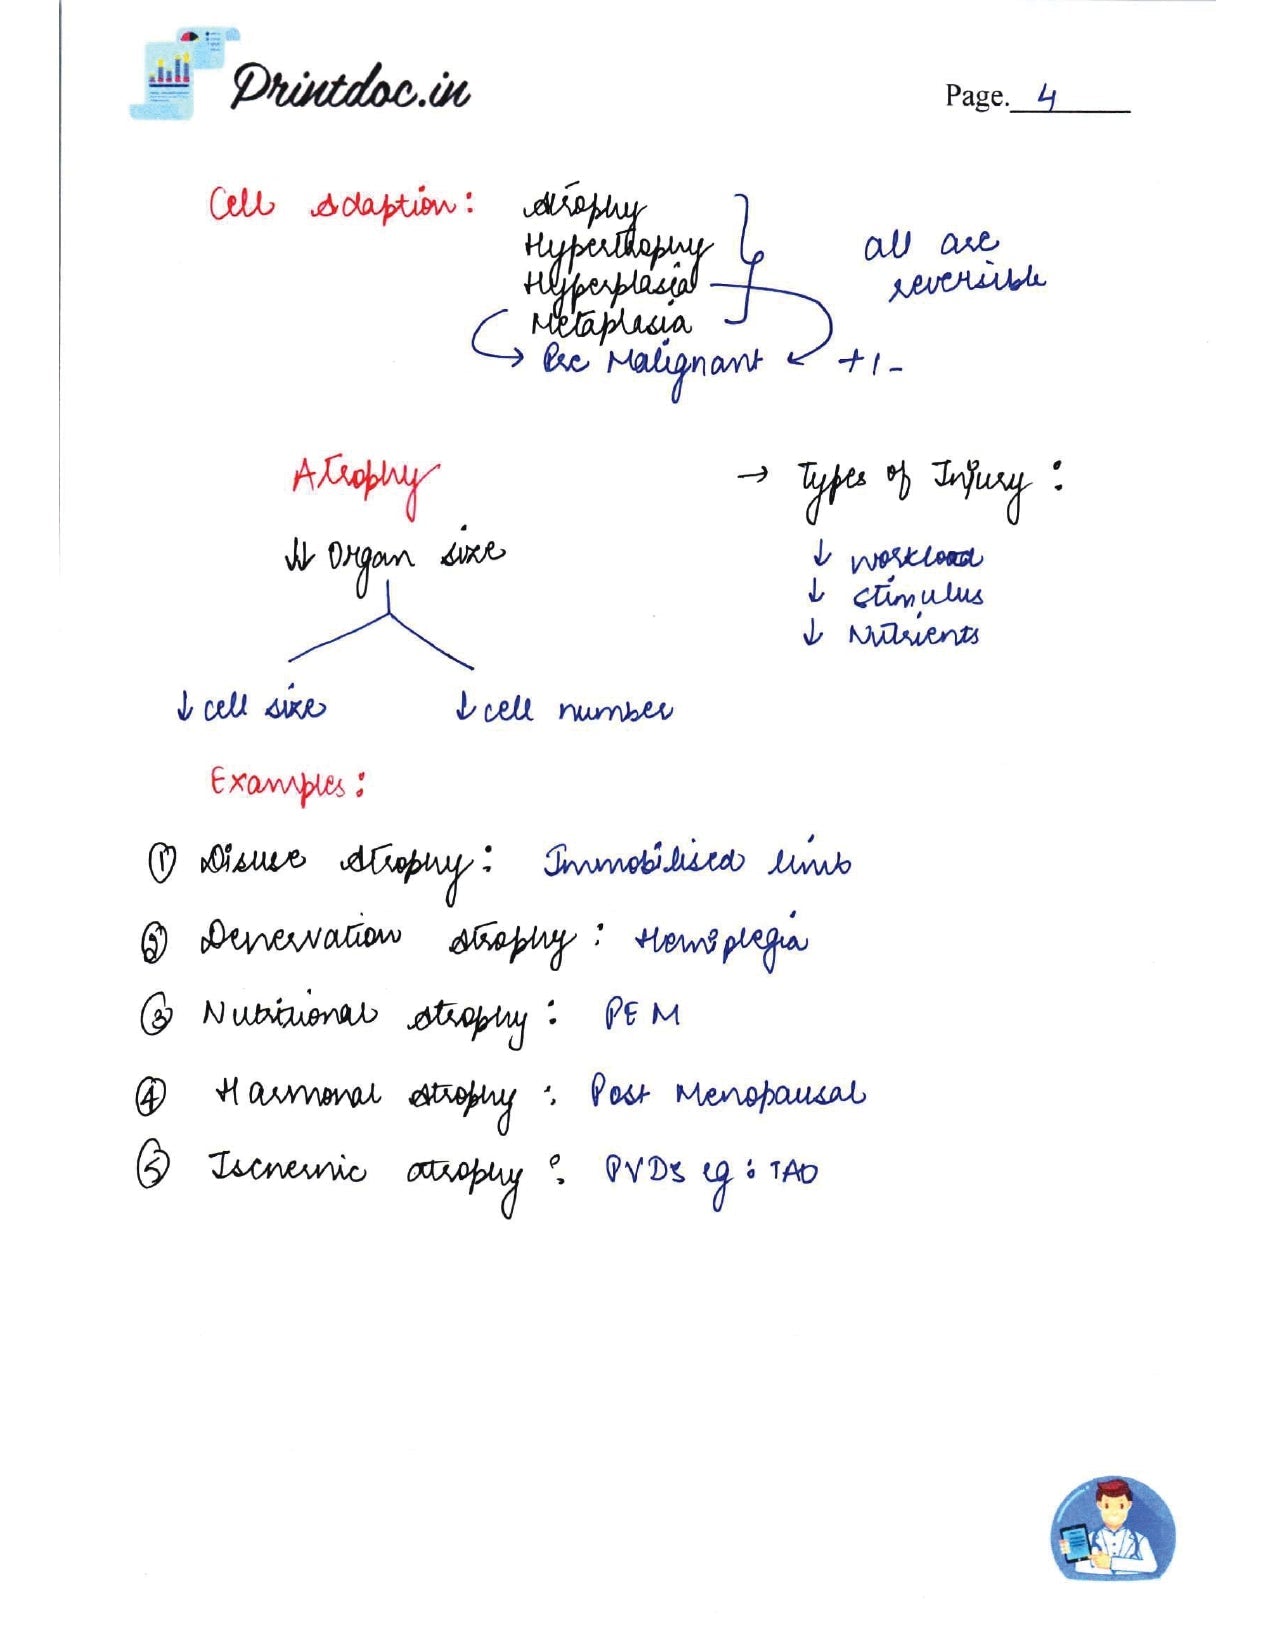 Printdoc.in
Page. 4
Cell adaption: Atrophy
Hyperthophy
Hyperplasia
Metaplasia
all are
reversible
Pre Malignant +/-
Atrophy → Types of Injury:
↓↓ Organ size ↓ workload
↓ stimulus
↓ Nutrients
↓ cell size ↓ cell number
Examples:
① Disuse atrophy: Immobilised limb
② Denervation atrophy: Hemiplegia
③ Nutritional atrophy: PEM
④ Harmonal atrophy: Post Menopausal
⑤ Ischemic atrophy: PVDs eg: TAO